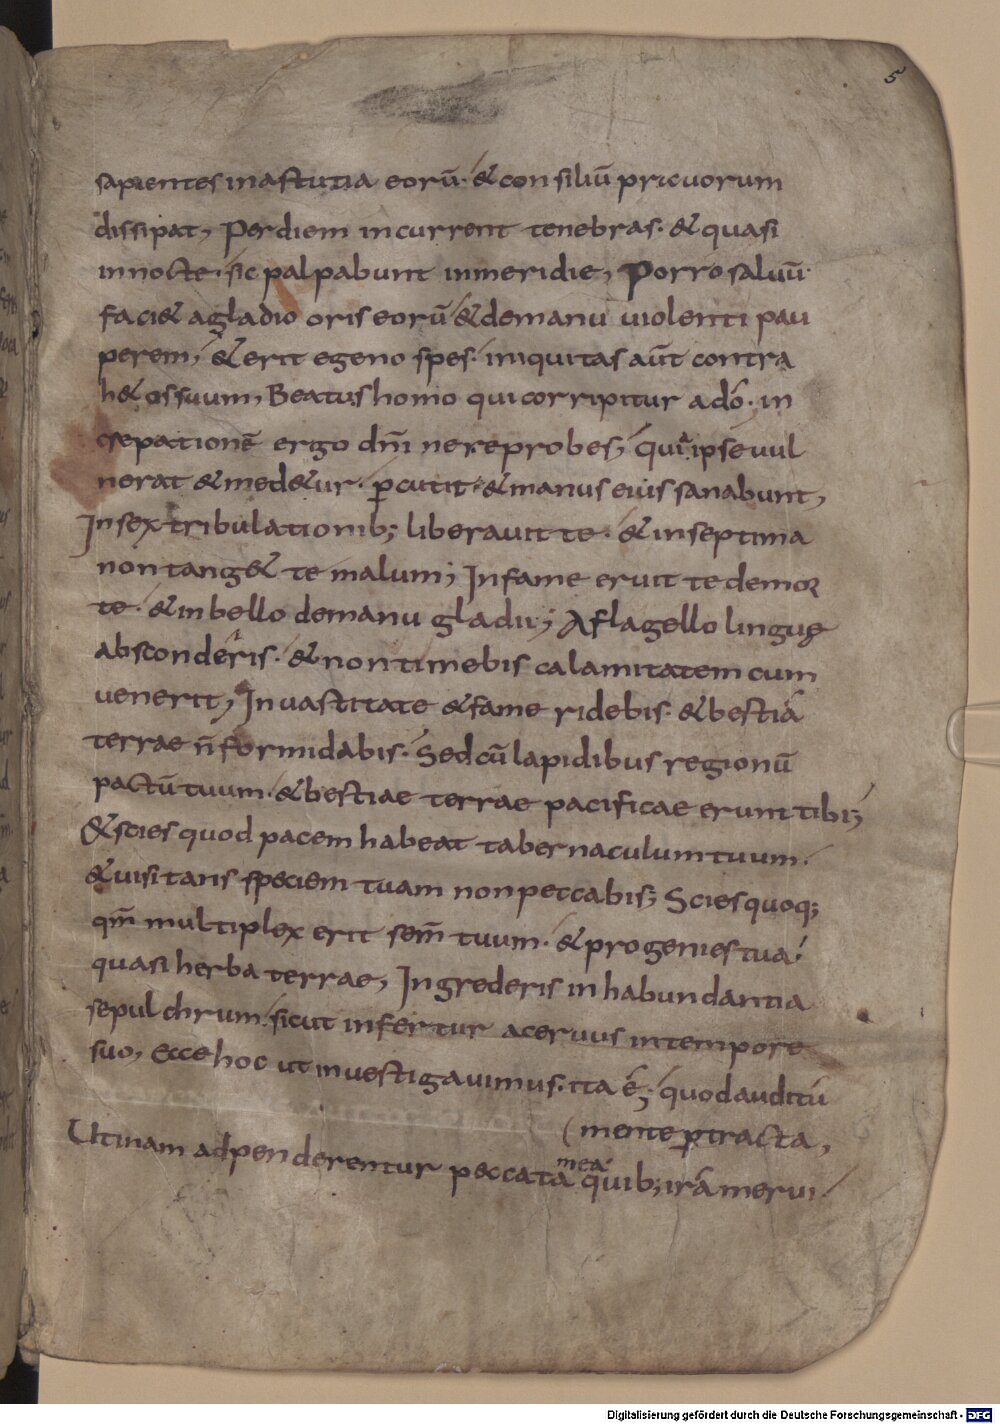 5
sapientes in astutia eorū· & consiliū pravorum
dissipat, Per diem incurrent tenebras· & quasi
in nocte· sic palpabunt in meridie, Porro saluū
faci& a gladio oris eorū & de manu violenti pau
perem, & erit egeno spes· iniquitas aūt contra
h& os suum, Beatus homo qui corripitur a dō· in
crepationē ergo dn̄i ne reprobes; quia ipse uul
nerat & med&ur· p̄cutit & manus eius sanabunt,
In sex tribulationib; liberauit te· & in septima
non tang& te malum; In fame eruit te de mor
te· & in bello de manu gladii; A flagello linguę
absconderis· & non timebis calamitatem cum
venerit, In uastitate & fame ridebis· & bestiā
terrae n̄ formidabis· Sed cū lapidibus regionū
pactū tuum· & bestiae terrae pacificae erunt tibi;
& scies quod pacem habeat tabernaculum tuum·
& uisitans speciem tuam non peccabis; Scies quoq;
qm̄ multiplex erit sem̄ tuum· & progenies tua
quasi herba terrae, Ingrederis in habundantia
sepulchrum· sicut infertur aceruus in tempore
suo, Ecce hoc ut inuestigauimus· ita ē; quod auditū
mente p̄tracta,
Utinam adpenderentur peccata mea quib; irā merui·
Digitalisierung gefördert durch die Deutsche Forschungsgemeinschaft - DFG